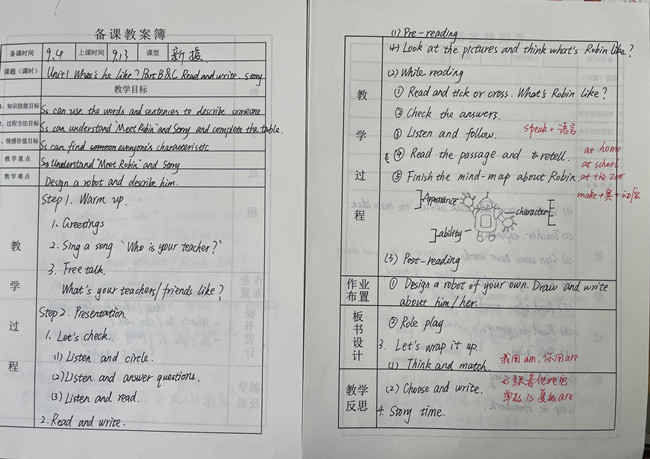 备课教案簿
备课时间 9.4 上课时间 9.13 课型 新授
课题(课时) Unit1 What's he like? Part B&C Read and write. story
教学目标
知识技能目标 Ss can use the words and sentences to describe someone
过程方法目标 Ss can understand "Meet Robin" and Story and complete the table.
情感价值目标 Ss can find someone's characteristic
教学重点 Ss Understand "Meet Robin" and Story
教学难点 Design a robot and describe him.
教学过程
Step 1. Warm up.
1. Greetings
2. Sing a song "Who is your teacher?"
3. Free talk.
What's your teachers/friends like?
Step 2. Presentation
1. Let's check.
(1) Listen and circle.
(2) Listen and answer questions.
(3) Listen and read.
2. Read and write.
教学过程
(1) Pre-reading
Look at the pictures and think what's Robin like?
(2) While reading
① Read and tick or cross. What's Robin like?
② Check the answers.
③ Listen and follow. speak + 语言
④ Read the passage and retell. at home
at school
⑤ Finish the mind-map about Robin. at the zoo
make + 宾 + 动原
Appearance
character
ability
(3) Post-reading
作业布置
① Design a robot of your own. Draw and write
about him/her.
板书设计
② Role play
3. Let's wrap it up.
(1) Think and match. 我用am,你用are
教学反思
(2) Choose and write. is跟着他她它
单数is复数are
4. Story time.